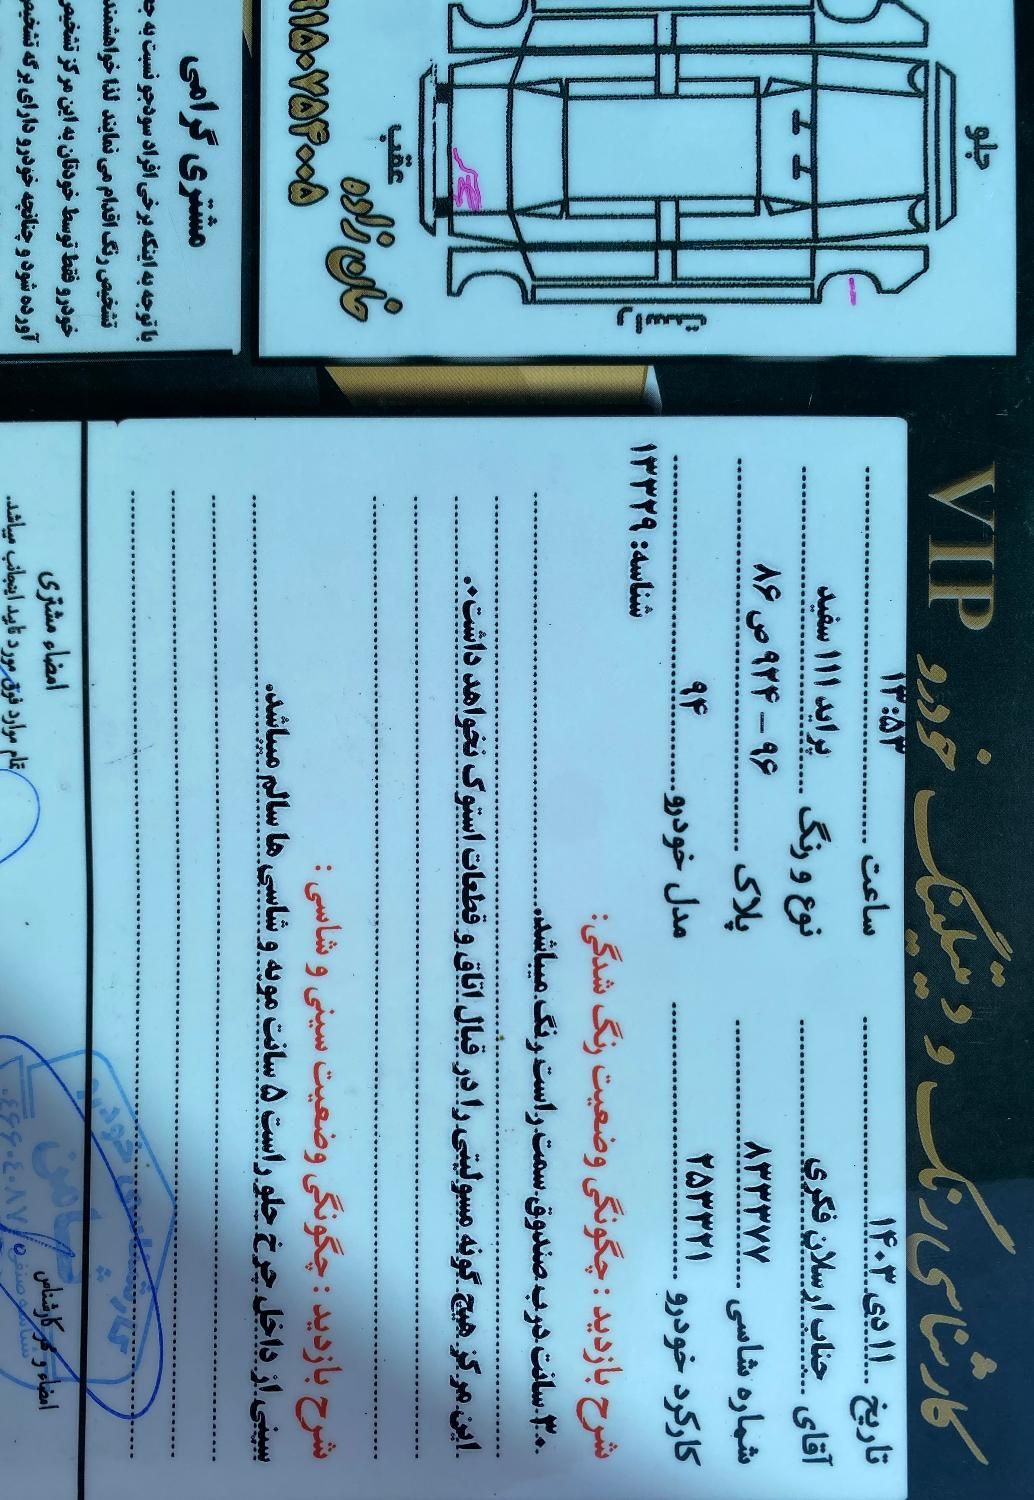 VIP کارشناسی رنگ و دیتیلینگ خودرو
تاریخ ۱۱ دی ۱۴۰۳ ساعت ۱۳:۵۳
آقای جناب ارسلان فکری نوع و رنگ پراید ۱۱۱ سفید
شماره شاسی ۸۳۳۳۷۷ پلاک ۹۶ – ۹۲۴ ص ۸۶
کارکرد خودرو ۲۵۳۳۲۱ مدل خودرو ۹۴
شناسه: ۱۳۳۲۹
شرح بازدید : چگونگی وضعیت رنگ شدگی:
۳۰ سانت درب صندوق سمت راست رنگ میباشد.
این مرکز هیچ گونه مسولیتی را در قبال اتاق و قطعات استوک نخواهد داشت.
شرح بازدید : چگونگی وضعیت سینی و شاسی :
سینی از داخل چرخ جلو راست ۵ سانت مویه و شاسی ها سالم میباشد.
امضاء و مهر کارشناس
امضاء مشتری
تمام موارد فوق مورد تایید اینجانب میباشد.
جلو
عقب
خان زاده
۹۱۵۰۷۵۴۰۰۵
مشتری گرامی
با توجه به اینکه برخی افراد سودجو نسبت به
تشخیص رنگ اقدام می نمایند لذا خواهشمند
خودرو فقط توسط خودتان به این مرکز تشخیص
آورده شود و چنانچه خودرو دارای برگه تشخیص